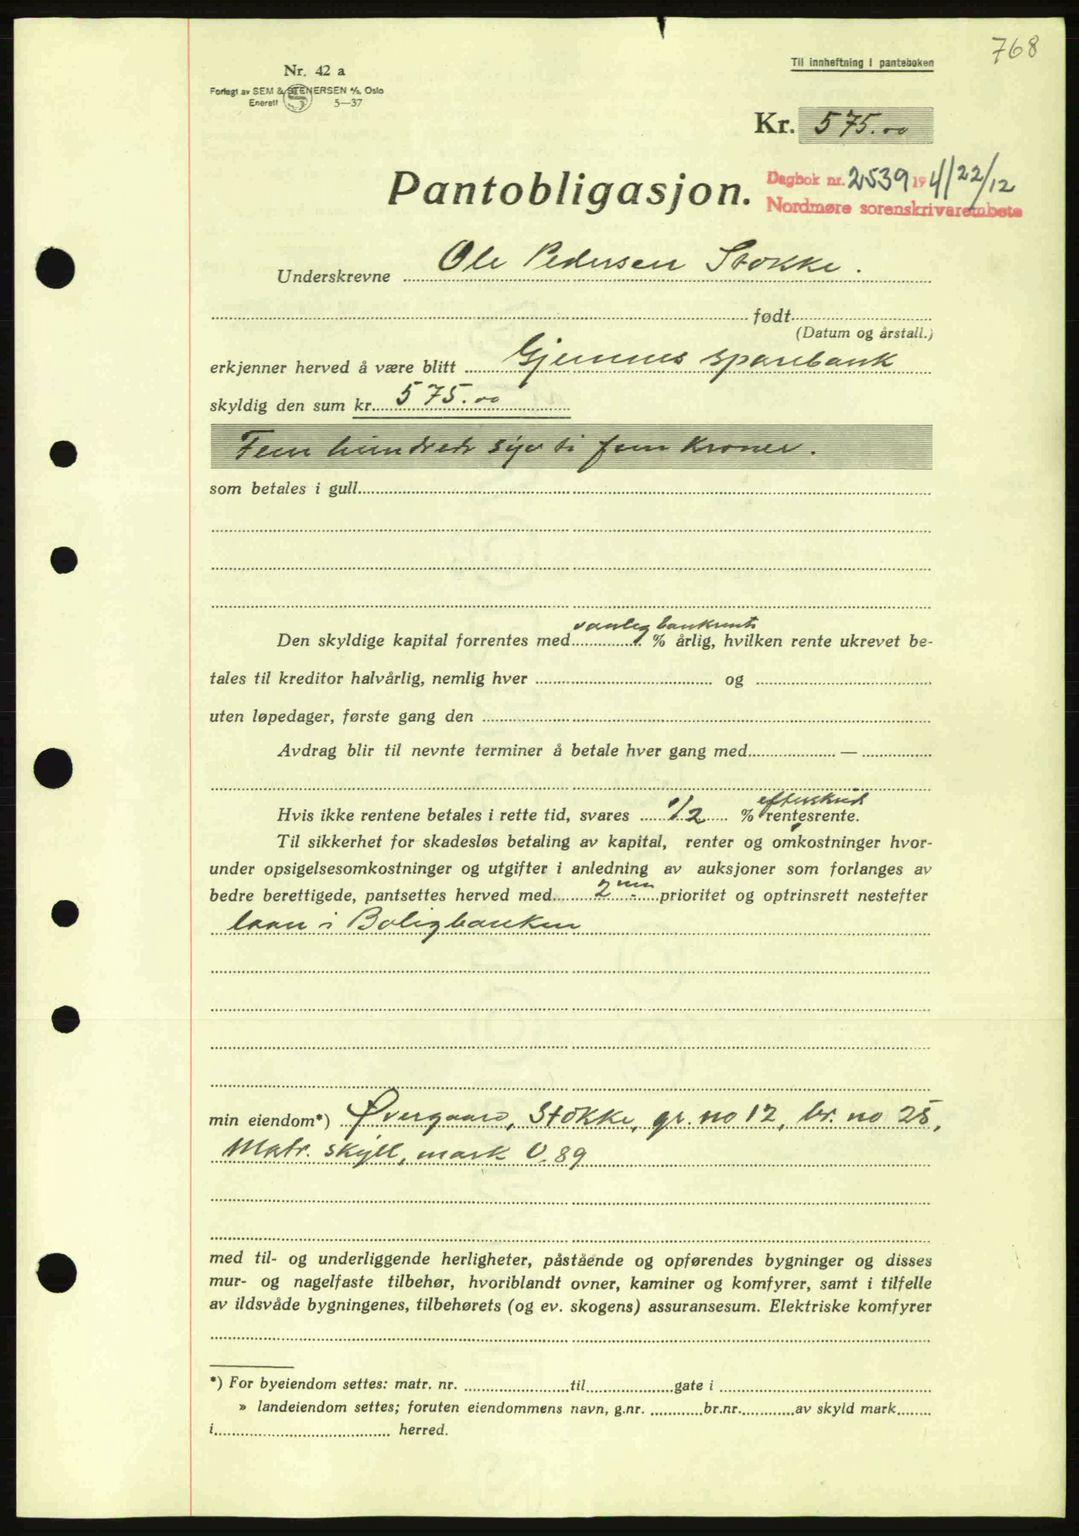 768
Til innheftning i panteboken
Nr. 42 a
Forlagt av SEM & STENERSEN A/S, Oslo
Enerett 5—37
Kr. 575.00
Pantobligasjon.
Dagbok nr. 2539 1941 22/12
Nordmøre sorenskrivarembete
Underskrevne Ole Pedersen Stokke.
født
(Datum og årstall.)
erkjenner herved å være blitt Gjemnes sparebank
skyldig den sum kr. 575.00
Fem hundrede syv ti fem kroner.
som betales i gull
Den skyldige kapital forrentes med vanlig bankrente % årlig, hvilken rente ukrevet be-
tales til kreditor halvårlig, nemlig hver og
uten løpedager, første gang den
Avdrag blir til nevnte terminer å betale hver gang med —
Hvis ikke rentene betales i rette tid, svares 1/2 % efterskud rentesrente.
Til sikkerhet for skadesløs betaling av kapital, renter og omkostninger hvor-
under opsigelsesomkostninger og utgifter i anledning av auksjoner som forlanges av
bedre berettigede, pantsettes herved med 2 prioritet og optrinsrett nestefter
laan i Boligbanken
min eiendom*) Øvergaard, Stokke, gr. no 12, br. no 25,
Matr. skyll, mark 0.89
med til- og underliggende herligheter, påstående og opførendes bygninger og disses
mur- og nagelfaste tilbehør, hvoriblandt ovner, kaminer og komfyrer, samt i tilfelle
av ildsvåde bygningenes, tilbehørets (og ev. skogens) assuransesum. Elektriske komfyrer
*) For byeiendom settes: matr. nr. til gate i
» landeiendom settes; foruten eiendommens navn, g.nr. br.nr. av skyld mark
i herred.